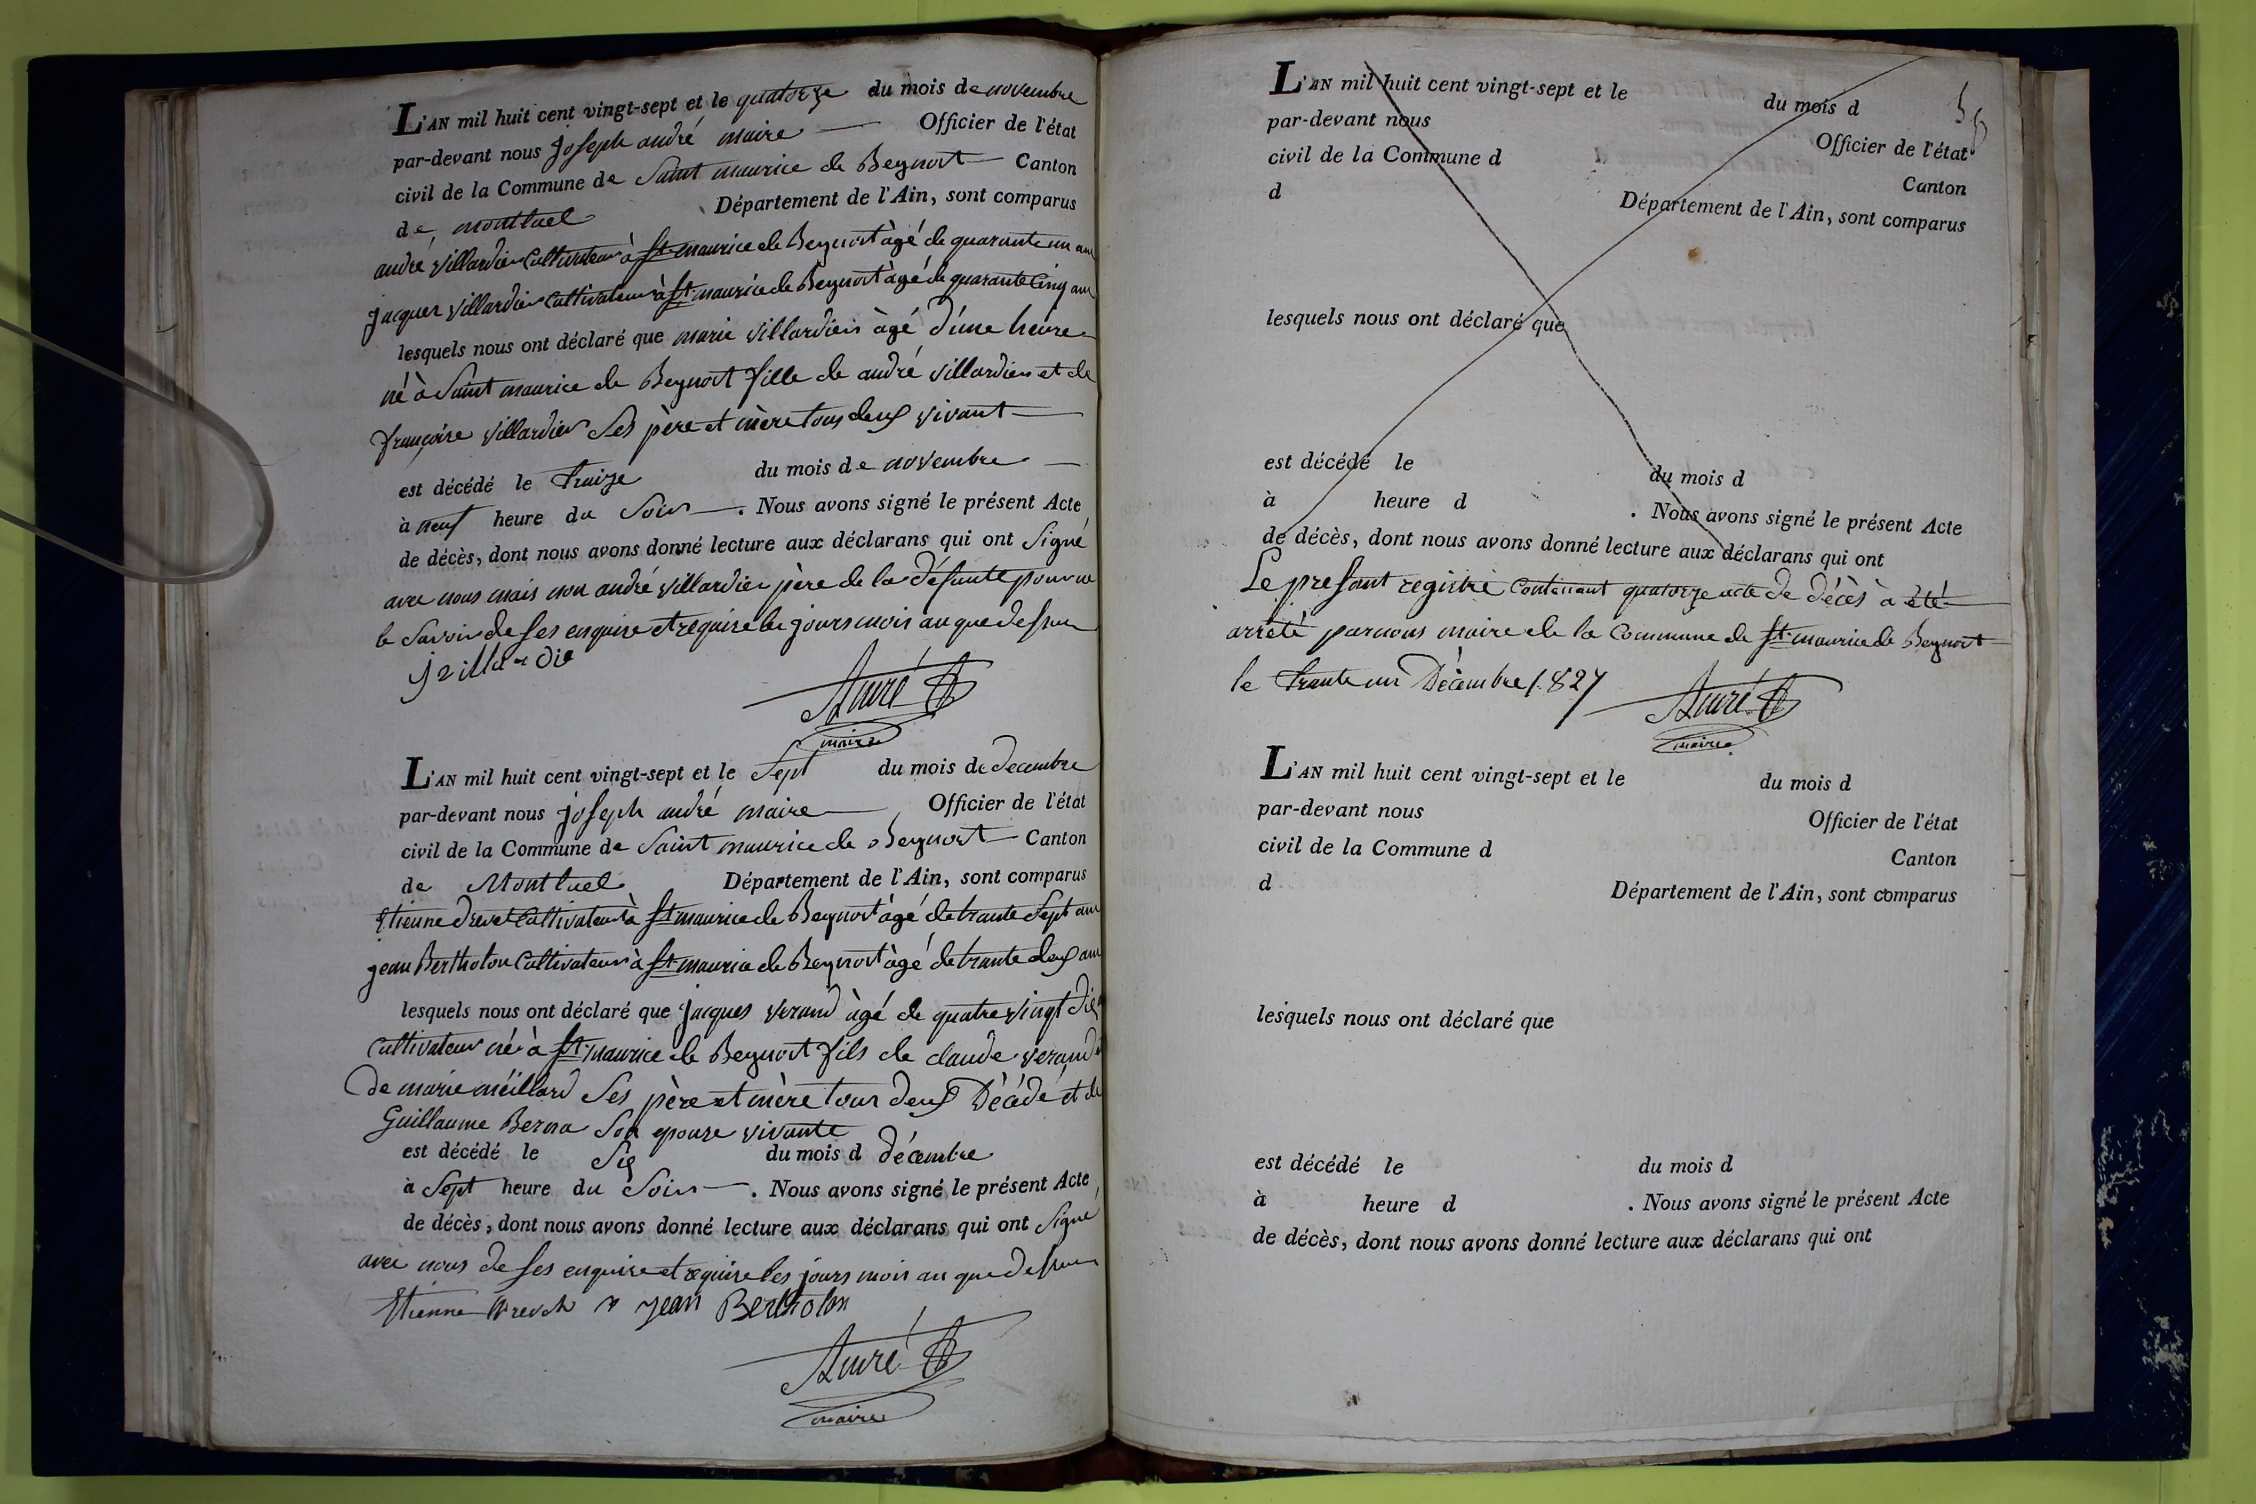 L'AN mil huit cent vingt-sept et le quatorze du mois de novembre
par-devant nous joseph andré maire Officier de l'état
civil de la Commune de Saint maurice de Beynost Canton
de montluel Département de l'Ain, sont comparus
andré villardier Cultivateur à St maurice de Beynost âgé de quarante un ans
jacques villardier Cultivateur à St maurice de Beynost âgé de quarante Cinq ans
lesquels nous ont déclaré que marie villardier âgé d'une heure
né à Saint maurice de Beynost fille de andré villardier et de
françoise villardier Ses père et mère tous deux vivant
est décédé le traize du mois de novembre
à neuf heure du Soir. Nous avons signé le présent Acte
de décès, dont nous avons donné lecture aux déclarans qui ont Signé
avec nous mais non andré villardier père de la défunte pour ne
le Savoir de ses enquise et requise les jours mois an que dessus
André
maire
L'AN mil huit cent vingt-sept et le Sept du mois de decembre
par-devant nous joseph andré maire Officier de l'état
civil de la Commune de Saint maurice de Beynost Canton
de Montluel Département de l'Ain, sont comparus
Etienne drevet Cultivateur à St maurice de Beynost âgé de trante Sept ans
jean Bertholon Cultivateur à St maurice de Beynost âgé de trante deux ans
lesquels nous ont déclaré que jacques verand âgé de quatre vingt dix
Cultivateur né à St maurice de Beynost fils de claude verand
de marie meillard Ses père et mère tous deux Décédé et de
Guillaume Berna Son epouse vivante
est décédé le Six du mois d décembre
à Sept heure du Soir. Nous avons signé le présent Acte
de décès, dont nous avons donné lecture aux déclarans qui ont Signé
avec nous de ses enquise et requise les jours mois an que dessus
Etienne jean Bertholon
André
maire
L'AN mil huit cent vingt-sept et le du mois d
par-devant nous Officier de l'état
civil de la Commune d Canton
d Département de l'Ain, sont comparus
lesquels nous ont déclaré que
est décédé le du mois d
à heure d . Nous avons signé le présent Acte
de décès, dont nous avons donné lecture aux déclarans qui ont
Le presant registre Contenant quatorze acte de décès à été
arrêté par nous maire de la Commune de St maurice de Beynost
le trante un Décembre 1827
André
maire
L'AN mil huit cent vingt-sept et le du mois d
par-devant nous Officier de l'état
civil de la Commune d Canton
d Département de l'Ain, sont comparus
lesquels nous ont déclaré que
est décédé le du mois d
à heure d . Nous avons signé le présent Acte
de décès, dont nous avons donné lecture aux déclarans qui ont